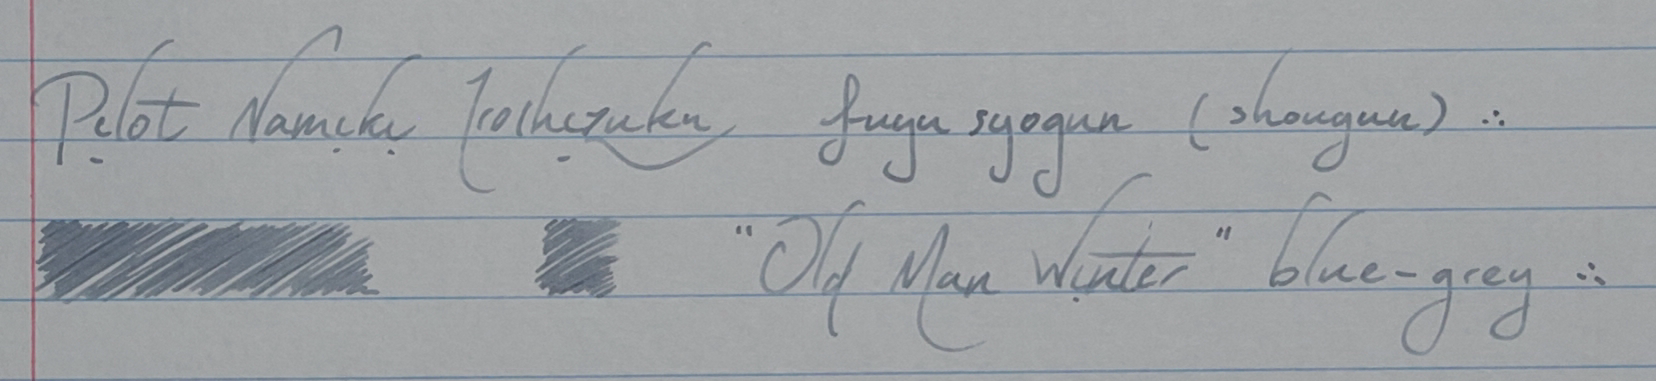 Pilot Namiki Iroshizuku fuyu syogun (shougun) ∴
"Old Man Winter" blue-grey ∴